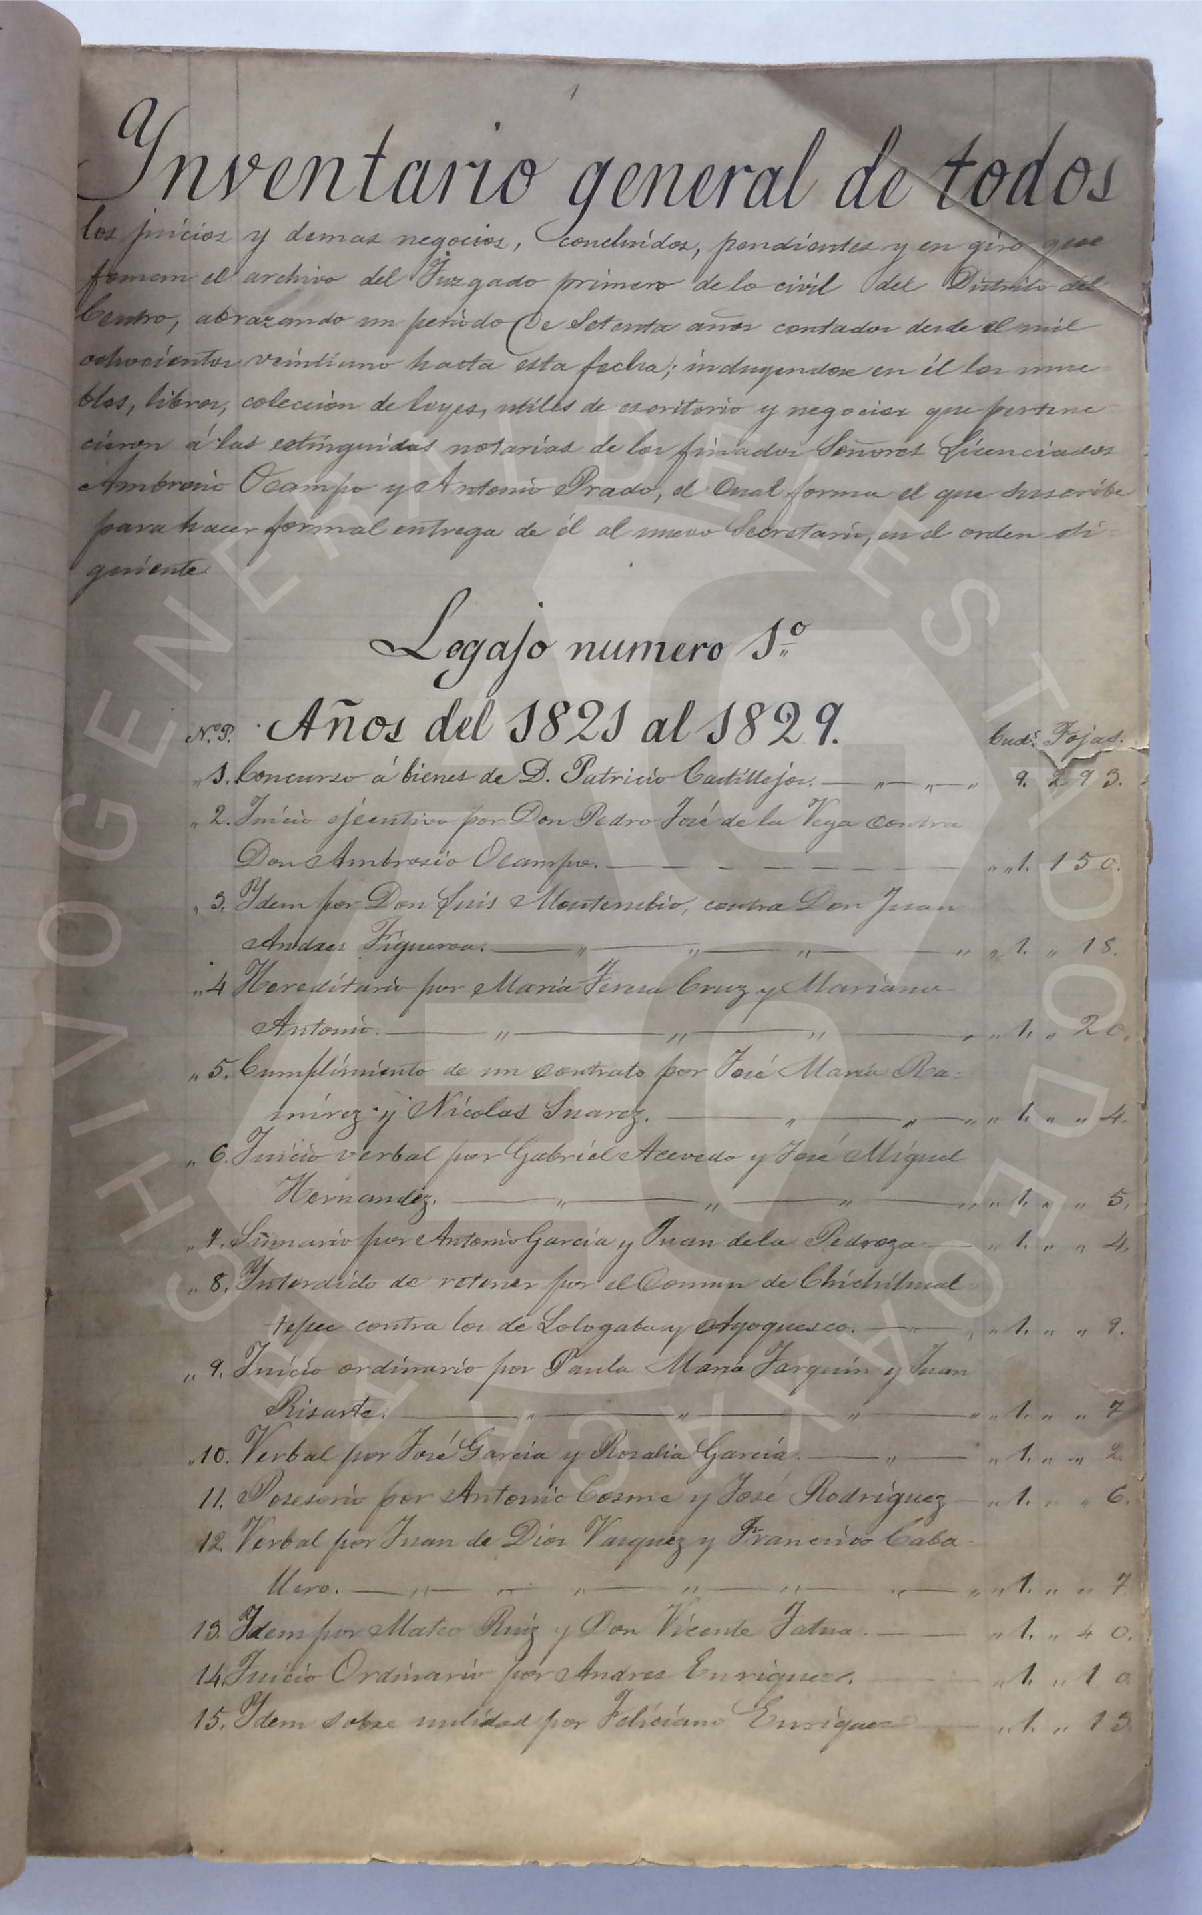 1
Ynventario general de todos
los juicios y demas negocios, concluidos, pendientes y en giro que
forman el archivo del Juzgado primero de lo civil del Distrito del
Centro, abrazando un periodo de setenta años contados desde el mil
ochocientos veintiuno hasta esta fecha; incluyendose en él los mue-
bles, libros, coleccion de leyes, utiles de escritorio y negocios que pertene-
cieron á las estinguidas notarias de los finados Señores Licenciados
Ambrosio Ocampo y Antonio Prado, el cual forma el que suscribe
para hacer formal entrega de él al nuevo Secretario, en el orden si-
guiente
Legajo numero 1º
Años del 1821 al 1829.
Nº P. Cuads. Fojas.
„ 1. Concurso á bienes de D. Patricio Castillejos. — „ „ „ 9. 293.
„ 2. Juicio ejecutivo por Don Pedro José de la Vega contra
Don Ambrosio Ocampo. — „ „ 1. 150.
„ 3. Ydem por Don Luis Monterubio, contra Don Juan
Andres Figueroa. — „ „ „ „ „ 1. „ 18.
„ 4 Hereditario por Maria Teresa Cruz y Mariano
Antonio. — „ „ „ „ „ 1. „ 20.
„ 5. Cumplimiento de un contrato por José Maria Ra-
mirez y Nicolas Suarez. — „ „ „ „ 1. „ „ 4.
„ 6. Juicio verbal por Gabriel Acevedo y José Miguel
Hernandez. — „ „ „ „ „ 1. „ „ 5.
„ 7. Sumario por Antonio Garcia y Juan de la Pedroza — „ 1. „ „ 4.
„ 8. Interdicto de retener por el Comun de Chichihual-
tepec contra los de Lologabe y Ayoquesco. — „ „ „ 1. „ „ 9.
„ 9. Juicio ordinario por Paula Maria Jarquin y Juan
Risarte. — „ „ „ „ „ 1. „ „ 7
„ 10. Verbal por José Garcia y Rosalia Garcia. — „ — „ 1. „ „ 2.
11. Posesorio por Antonio Cosme y José Rodriguez — „ 1. „ „ 6.
12. Verbal por Juan de Dios Vasquez y Francisco Caba-
llero. — „ „ „ „ „ „ „ „ 1. „ „ 7
13. Ydem por Mateo Ruiz y Don Vicente — „ 1. „ 40.
14. Juicio Ordinario por Andres Enriquez. — „ 1. „ 10
15. Ydem sobre nulidad por Feliciano Enriquez — „ 1. „ 13.
ARCHIVO GENERAL DEL ESTADO DE OAXACA